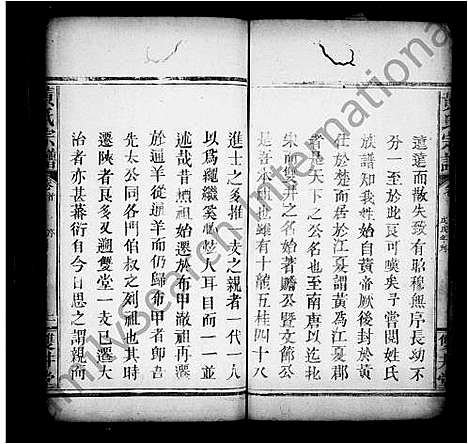 遠遠而散失致有昭穆無序長幼不
分一至於此良可嘆矣予嘗閱姓氏
族譜知我姓始自黃帝厥後封於黃
往於楚而居於江夏謂黃為江夏郡
者是天下之公名也至南唐以迄
宋而雙井之名始著贈公暨文節公
兄弟叔姪登科者有十龍五桂四十八
進士之多推一支之親者一代一人
以為繩繼奚必炫人耳目而一一並
述哉昔顯祖始遷於布甲澈祖再遷
於通羊從通羊而仍歸布甲者即吾
先太公同各門伯叔之列祖也其時
遷陝者艮多又遡雙堂一支已遷大
治者亦甚蕃衍自今日思之謂親而
黃氏宗譜
卷首
FamilySearch International